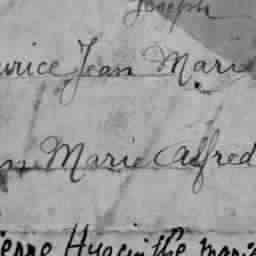 Joseph
urice Jean Marie
n Marie Alfred
ierre Hyacinthe marie